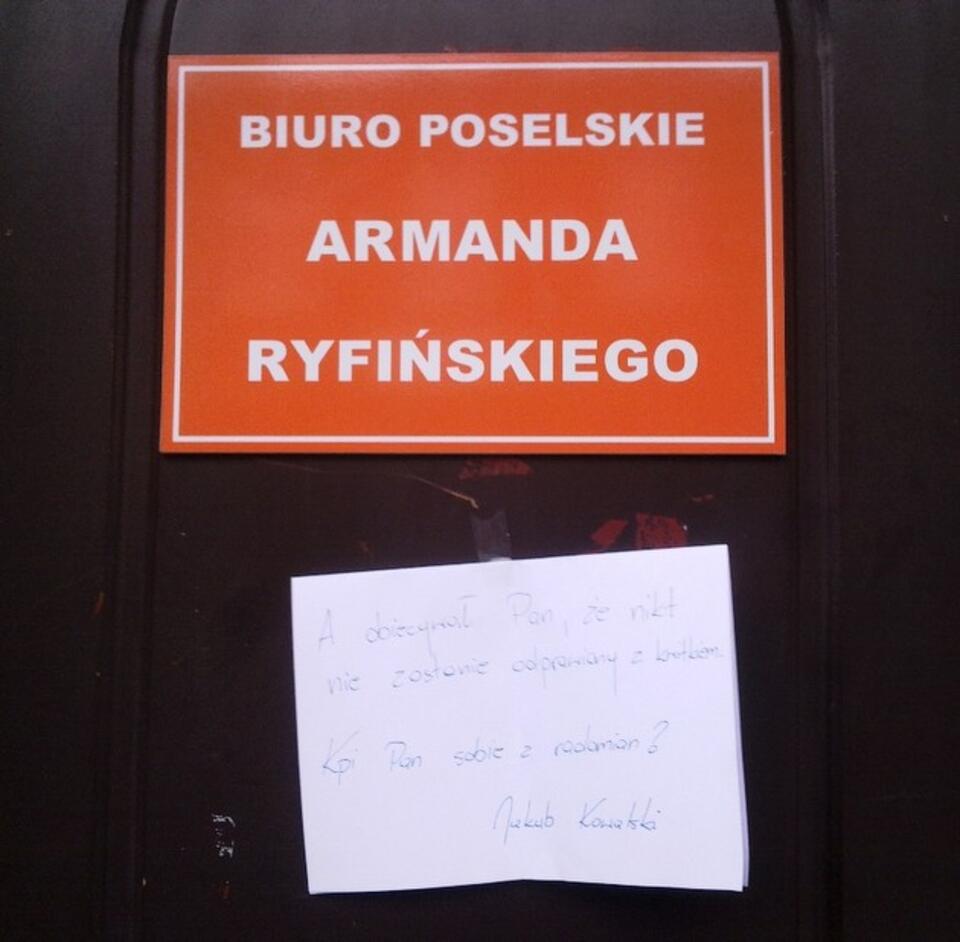 BIURO POSELSKIE
ARMANDA
RYFIŃSKIEGO
A obiecywał Pan, że nikt
nie zostanie odprawiony z kwitkiem.
Kpi Pan sobie z radomian?
Jakub Kowalski